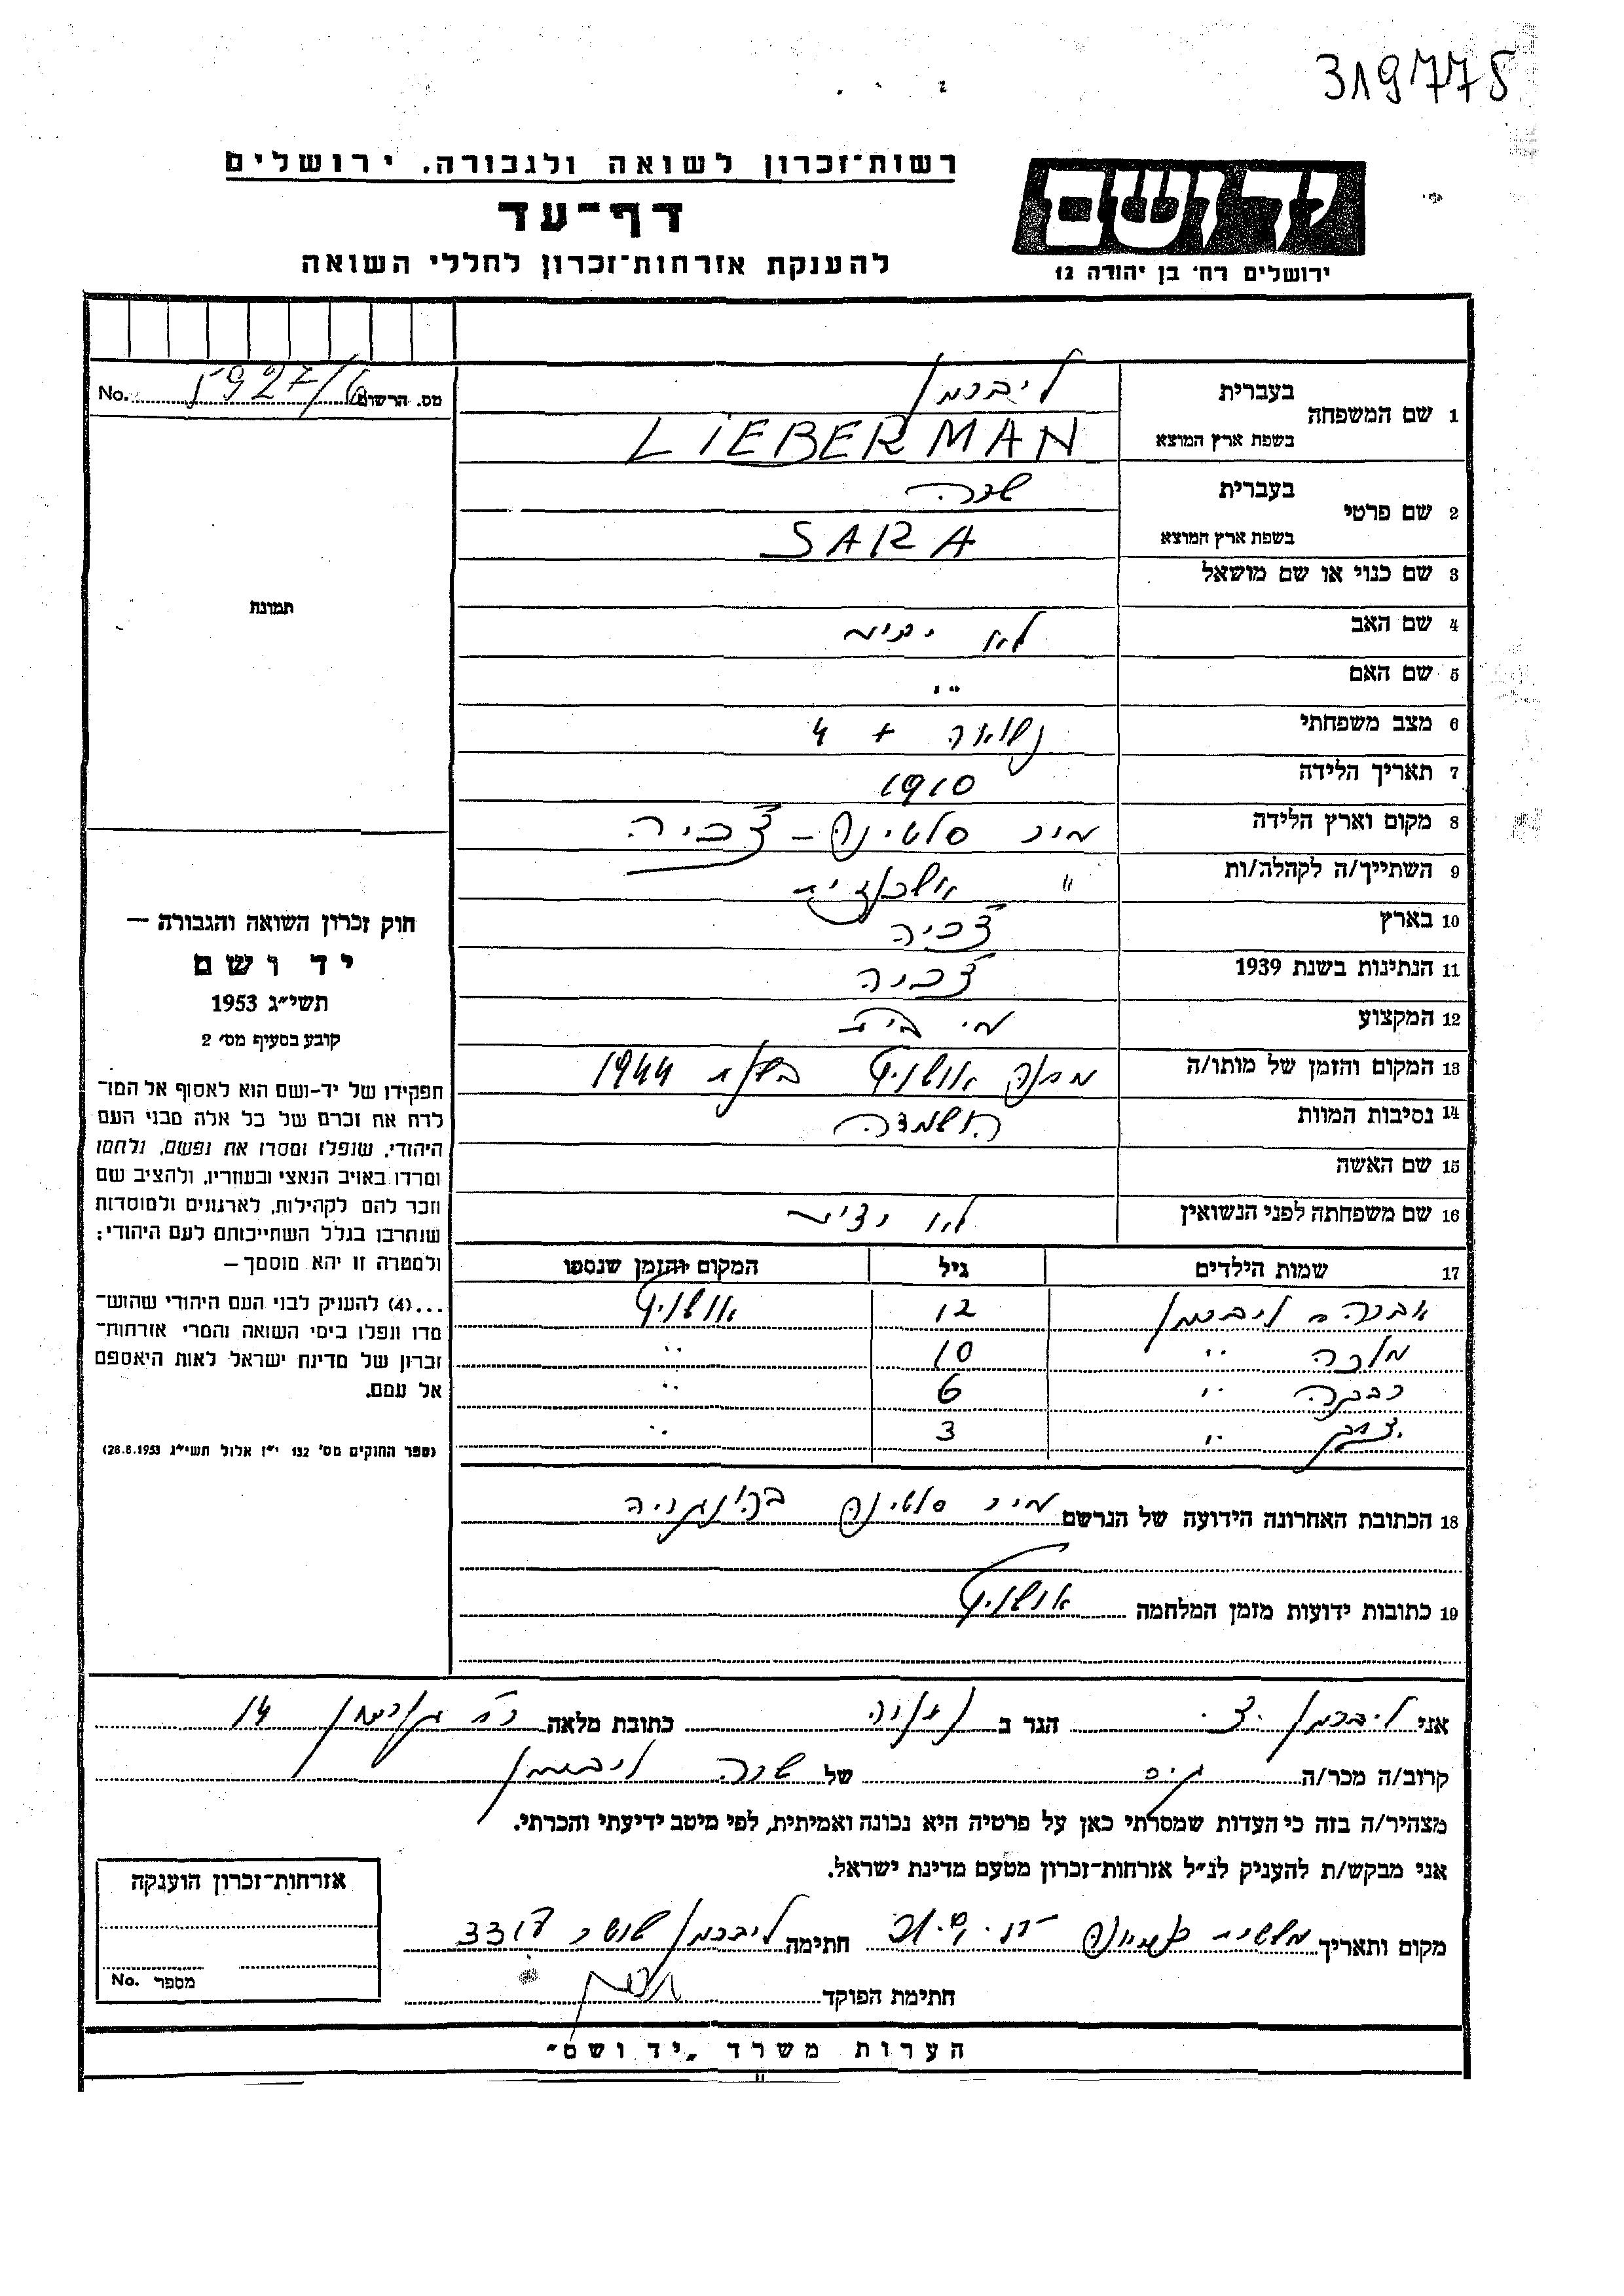 319778
רשות־זכרון לשואה ולגבורה. ירושלים
דף־עד
להענקת אזרחות־זכרון לחללי השואה
יד ושם
ירושלים רח׳ בן יהודה 12
מס. הרשום 5927/6 No.
1 שם המשפחה בעברית ליברמן
בשפת ארץ המוצא LIEBERMAN
2 שם פרטי בעברית שרה
בשפת ארץ המוצא SARA
3 שם כנוי או שם מושאל
4 שם האב לא ידוע
5 שם האם "
6 מצב משפחתי נשואה + 4
7 תאריך הלידה 1910
8 מקום וארץ הלידה סלטינה - צ׳כיה
9 השתייך/ה לקהלה/ות " אשכנזית
10 בארץ צ׳כיה
11 הנתינות בשנת 1939 צ׳כיה
12 המקצוע בית
13 המקום והזמן של מותו/ה מחנה אושויץ בשנת 1944
14 נסיבות המוות הושמדה
15 שם האשה
16 שם משפחתה לפני הנשואין לא ידוע
17 שמות הילדים גיל המקום והזמן שנספו
ליברמן 12 אושויץ
מלכה " 10 "
רבקה " 6 "
יצחק " 3 "
18 הכתובת האחרונה הידועה של הנרשם סלטינה בהונגריה
19 כתובות ידועות מזמן המלחמה אושויץ
תמונה
חוק זכרון השואה והגבורה —
יד ושם
תשי״ג 1953
קובע בסעיף מס׳ 2
תפקידו של יד-ושם הוא לאסוף אל המו־
לדת את זכרם של כל אלה מבני העם
היהודי, שנפלו ומסרו את נפשם, נלחמו
ומרדו באויב הנאצי ובעוזריו, ולהציב שם
וזכר להם לקהילות, לארגונים ולמוסדות
שנחרבו בגלל השתייכותם לעם היהודי;
ולמטרה זו יהא מוסמך —
...(4) להעניק לבני העם היהודי שהוש־
מדו ונפלו בימי השואה והמרי אזרחות־
זכרון של מדינת ישראל לאות היאספם
אל עמם.
(ספר החוקים מס׳ 132 י״ז אלול תשי״ג 28.8.1953)
אני ליברמן צ. הגר ב נתניה כתובת מלאה רח׳ 14
קרוב/ה מכר/ה גיס של שרה ליברמן
מצהיר/ה בזה כי העדות שמסרתי כאן על פרטיה היא נכונה ואמיתית, לפי מיטב ידיעתי והכרתי.
אני מבקש/ת להעניק לנ״ל אזרחות-זכרון מטעם מדינת ישראל.
מקום ותאריך חתימה ליברמן
חתימת הפוקד
אזרחות־זכרון הוענקה
מספר No.
הערות משרד „יד ושם"